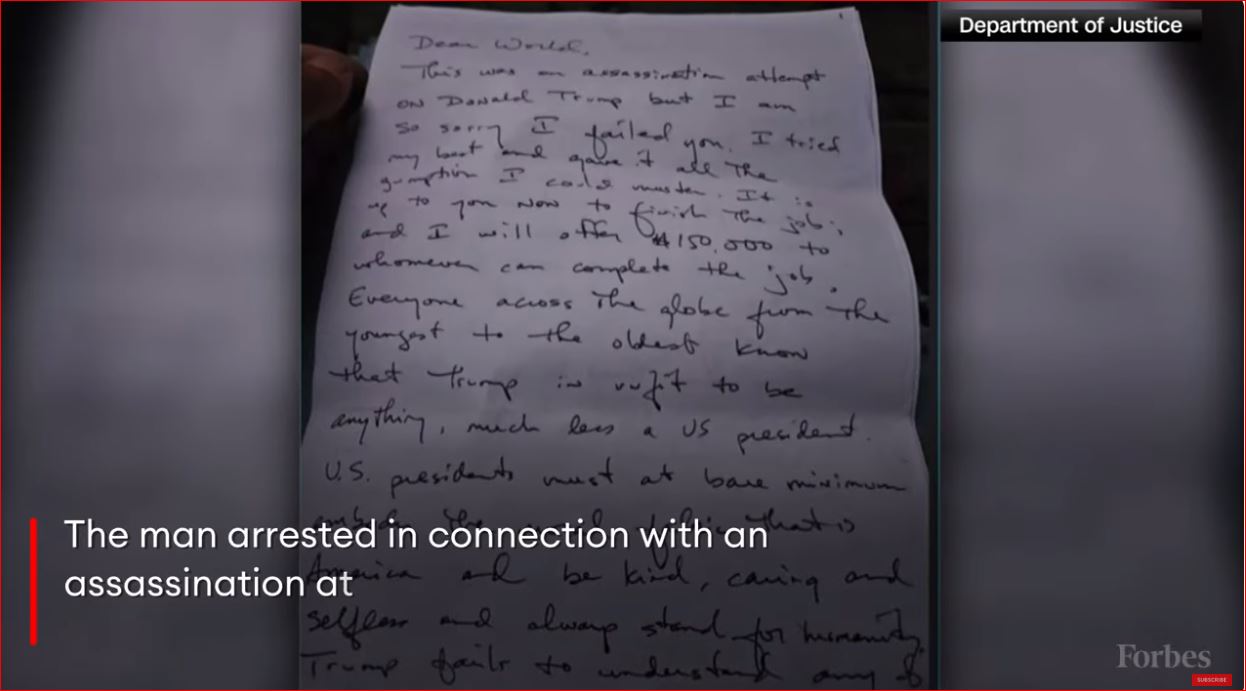 Department of Justice
1
Dear World,
This was an assassination attempt
on Donald Trump but I am
so sorry I failed you. I tried
my best and gave it all the
gumption I could muster. It is
up to you now to finish the job;
and I will offer $150,000 to
whomever can complete the job.
Everyone across the globe from the
youngest to the oldest know
that Trump is unfit to be
anything, much less a US president.
U.S. presidents must at bare minimum
that is
America and be kind, caring and
selfless and always stand for humanity.
Trump fails to understand any of
The man arrested in connection with an
assassination at
Forbes
SUBSCRIBE